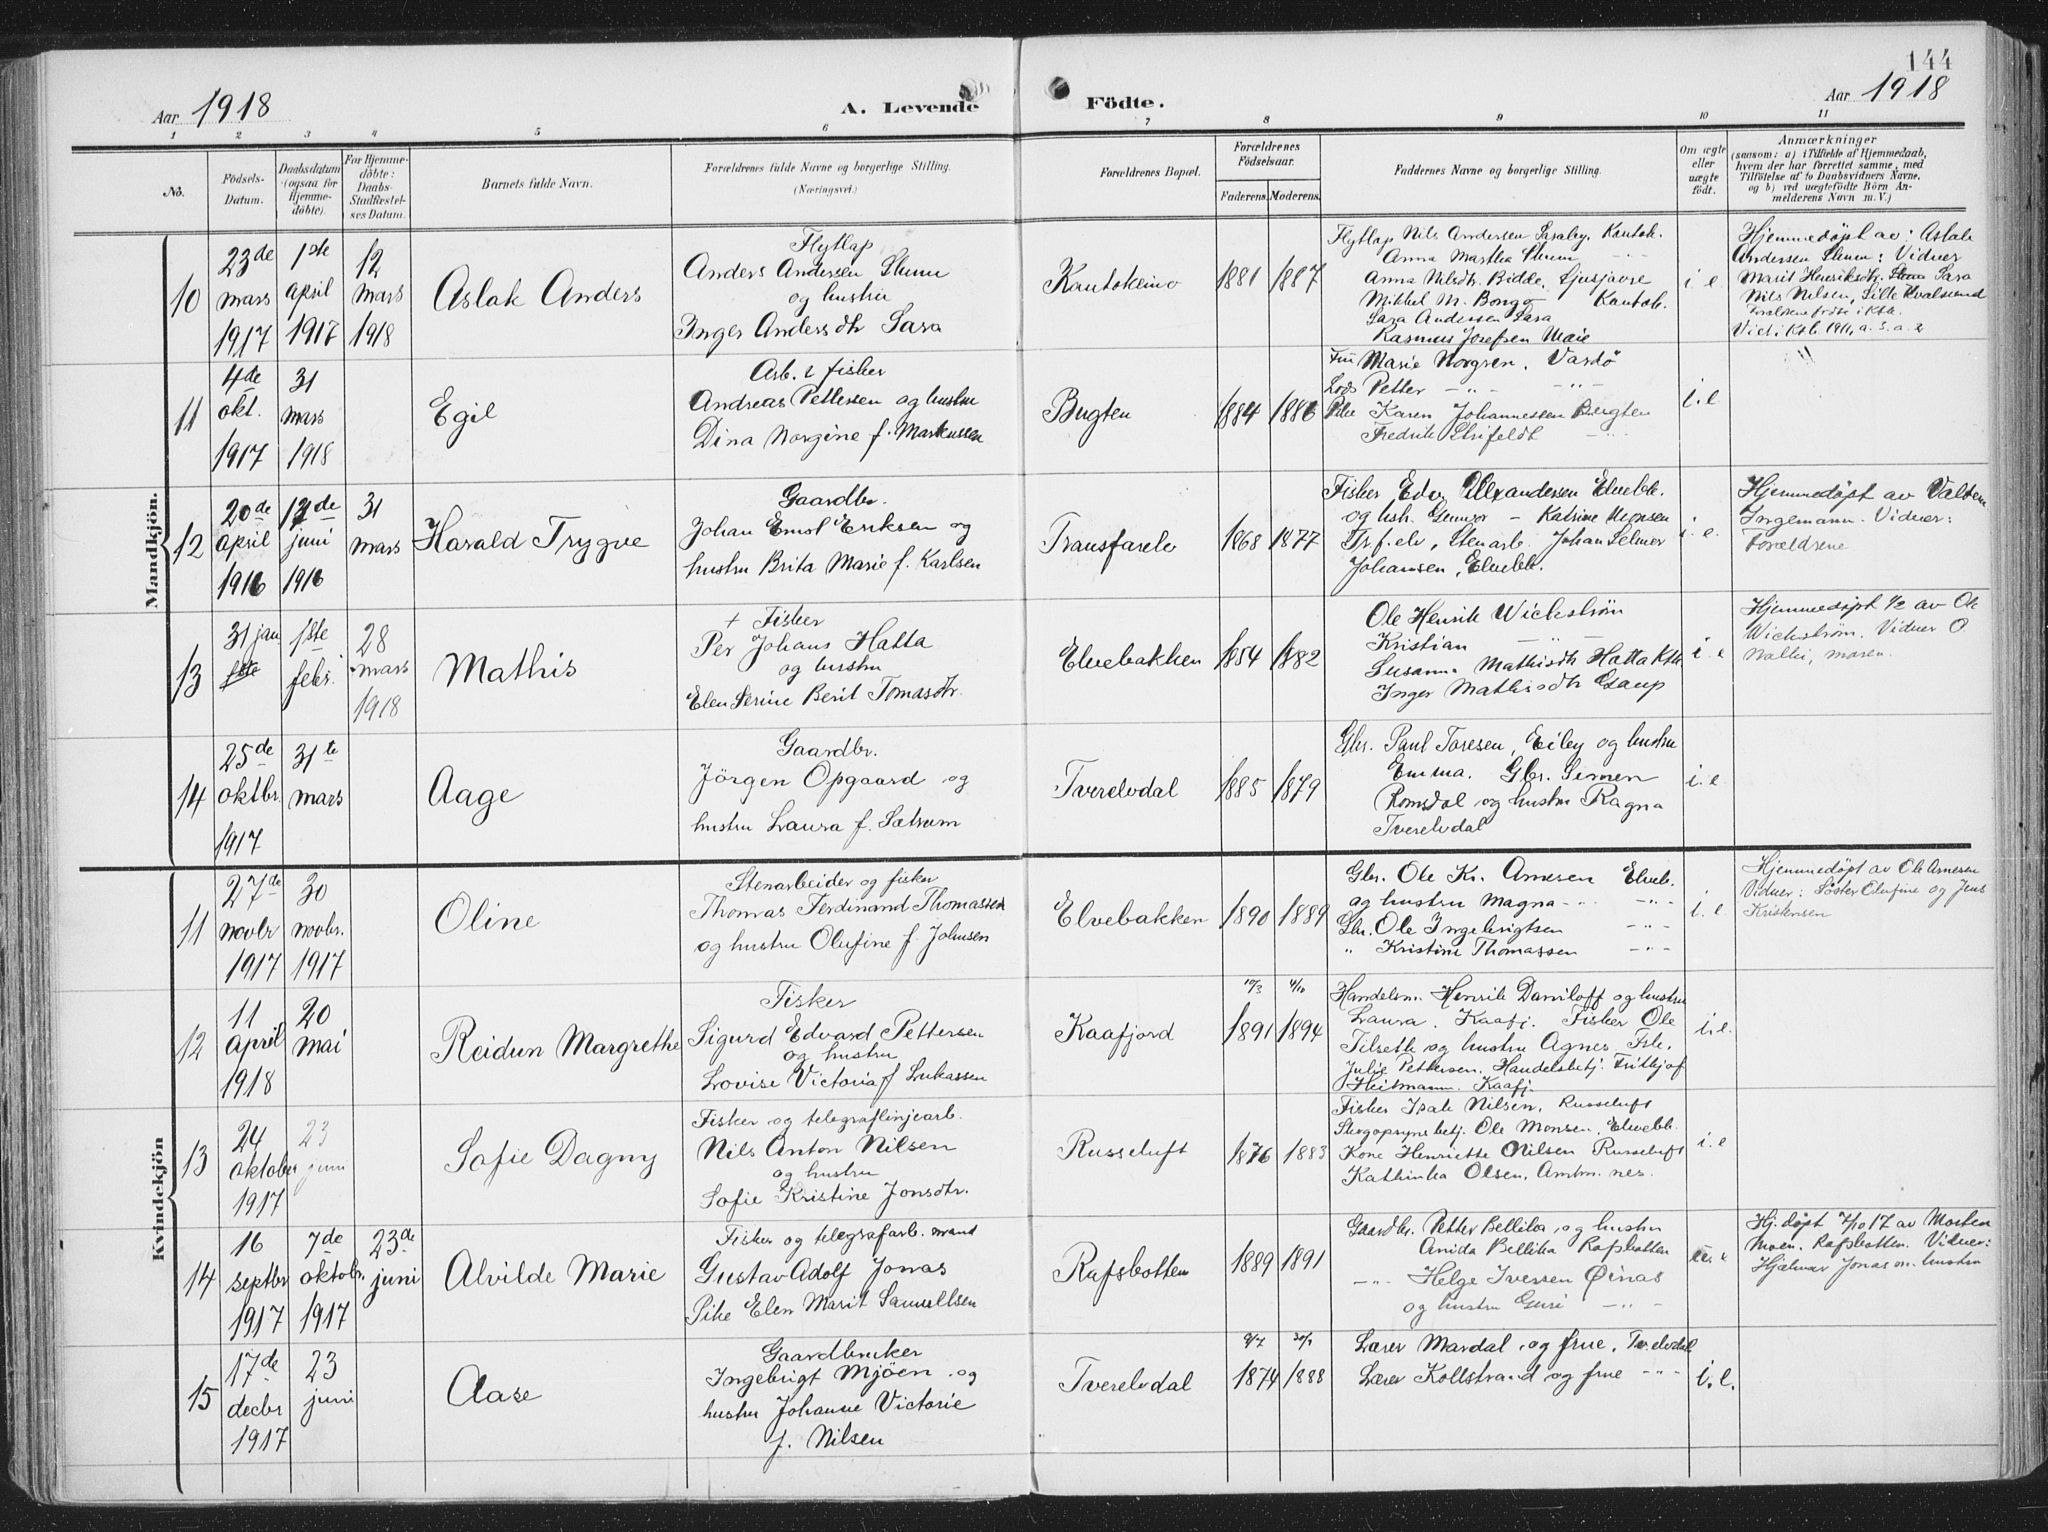 144
Aar 1918
A. Levende Födte.
Aar 1918
1 2 3 4 5 6 7 8 9 10 11
No.
Födsels-Datum.
Daabsdatum (ogsaa for Hjemmedöbte).
For Hjemmedöbte: Daabs-Stadfæstelses Datum.
Barnets fulde Navn.
Forældrenes fulde Navne og borgerlige Stilling.
(Næringsvei.)
Forældrenes Bopæl.
Forældrenes Födselsaar.
Faderens. Moderens.
Faddernes Navne og borgerlige Stilling.
Om ægte eller uægte födt.
Anmærkninger
(saasom: a) i Tilfælde af Hjemmedaab, hvem der har forrettet samme, med Tilföielse af to Daabsvidners Navne, og b) ved uægtefödte Börn Anmelderens Navn m. V.)
Mandkjön.
10
23de mars 1917
1ste april 1917
12 mars 1918
Aslak Anders
Flytlap
Anders Andersen
og hustru
Inger Andersdtr Sara
Kautokeino
1881 1887
Flytlap Nils Andersen Kautok.
Anna Marthea
Anna Nilsdtr.
Mikkel M. Bongo Kautok.
Sara Andersen Sara
Rasmus Josefsen
i e
Hjemmedöpt av: Aslak
Andersen Vidner
Marit Henriksdtr. Sara
Nils Nilsen, Lille Kvalsund
11
4de okt. 1917
31 mars 1918
Egil
Arb. & fisker
Andreas Pettersen og hustru
Dina Norgine f. Markussen
Bugten
1884 1886
Fru Marie Norgren. Vardö
Lods Petter -"- -"-
Pike Karen Johannessen Bugten
Fredrik Strifeldt -"-
i. e
12
20de april 1916
juni 1916
31 mars
Harald Trygve
Gaardbr.
Johan Ernst Eriksen og
hustru Brita Marie f. Karlsen
Transfarelv
1868 1877
Fisker Edv. Alexandersen Elvebk.
og hstr. Gunvor - Katrine Monsen
Tr.f.elv, Stenarb. Johan Selmer
Johansen, Elvebk.
i. e.
Hjemmedöpt av
Ingemann. Vidner:
Forældrene
13
31 jan
1ste febr.
28 mars 1918
Mathis
+ Fisker
Per Johans Hætta
og hustru
Elen Serine Berit Tomasdtr.
Elvebakken
1854 1882
Ole Henrik Wickström
Kristian -"-
Susanna Mathisdtr Hætta Ktk.
Inger Mathisdtr Gaup
i. e
Hjemmedöpt 1/2 av Ole
Wickström. Vidner O.
14
25de oktbr. 1917
31te mars
Aage
Gaardbr.
Jörgen Opgaard og
hustru Laura f. Sætrum
Tverelvdal
1885 1879
Gbr. Paul Toresen, Eiby og hustru
Emma. Gbr. Simen
Romsdal og hustru Ragna
Tverelvdal
i. e
Kvindekjön
11
27de novbr 1917
30 novbr. 1917
Oline
Stenarbeider og fisker
Thomas Ferdinand Thomassen
og hustru Olufine f. Johnsen
Elvebakken
1890 1889
Gbr. Ole Kr. Arnesen Elveb.
og hustru Magna -"- -"-
Gbr. Ole Ingebrigtsen -"-
" Kristine Thomassen -"-
i. e
Hjemmedöpt av Ole Arnesen
Vidner: Söster Olufine og Jens
Kristensen
12
11 april 1918
20 mai
Reidun Margrethe
Fisker
Sigurd Edvard Pettersen
og hustru
Lovise Victoria f. Lukassen
Kaafjord
10/3 1891 4/10 1894
Handelsm. Henrik Daniloff og hustru
Laura. Kaafj. Fisker Ole
Tilseth og hustru Agnes
Julie Pettersen. Handelsbetj. Fritjof
Heitmann. Kaafj.
i. e.
13
24 oktober 1917
23 juni
Sofie Dagny
Fisker og telegraflinjearb.
Nils Anton Nilsen
og hustru
Sofie Kristine Jonsdtr.
Russeluft
1876 1883
Fisker Isak Nilsen. Russeluft
Skogopsynsbetj. Ole Monsen. Elvebk.
Kone Henriette Nilsen Russeluft
Kathinka Olsen. Amtm.nes.
i. e
14
16 septbr 1917
7de oktobr. 1917
23de juni
Alvilde Marie
Fisker og telegrafarb.
Gustav Adolf Jonas
Pike Elen Marit Samuelsen
Rafsbotten
1889 1891
Gaardbr. Petter Bellika og hustru
Anida Bellika Rafsbotten
-"- Helge Iversen Öinas
og hustru Guri -"-
Hj. döpt 7/10 17 av Morten
Moen. Rafsbotten. Vidner:
Hjalmar Jonas m. hustru
15
17de decbr 1917
23 juni
Aase
Gaardbruker
Ingebrigt Mjöen og
hustru Johanne Victorie
f. Nilsen
Tverelvdal
1874 1888
Lærer Mardal og frue. Tverelvdal
Lærer Kollstrand og frue -"-
i. e.